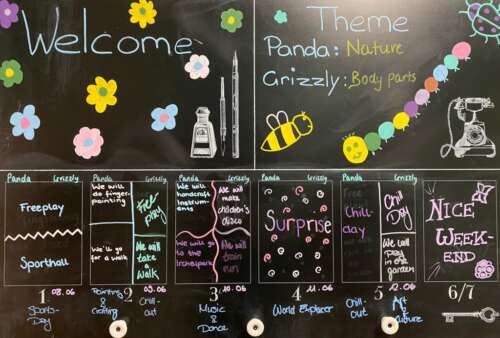 Welcome
Theme
Panda: Nature
Grizzly: Body parts
Panda Grizzly
Freeplay
Sporthall
Panda Grizzly
We will do finger-painting
Free play
We'll go for a walk
We will take a walk
Panda Grizzly
We will handcraft instruments
We will make children's disco
We will go to the
We will train
Panda Grizzly
Surprise
Panda Grizzly
Chill-day
Chill Day
We will play in the garden
NICE
WEEK-
END
1 08.06
Sports-
Day
2 09.06
Painting & Crafting
Chill-out
3 10.06
Music
&
Dance
4 11.06
World Explorer
5 12.06
Chill-out
Art & Culture
6/7